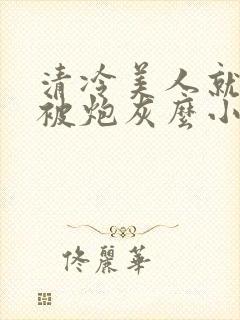 清冷美人就
被炮灰麼小
佟麗華